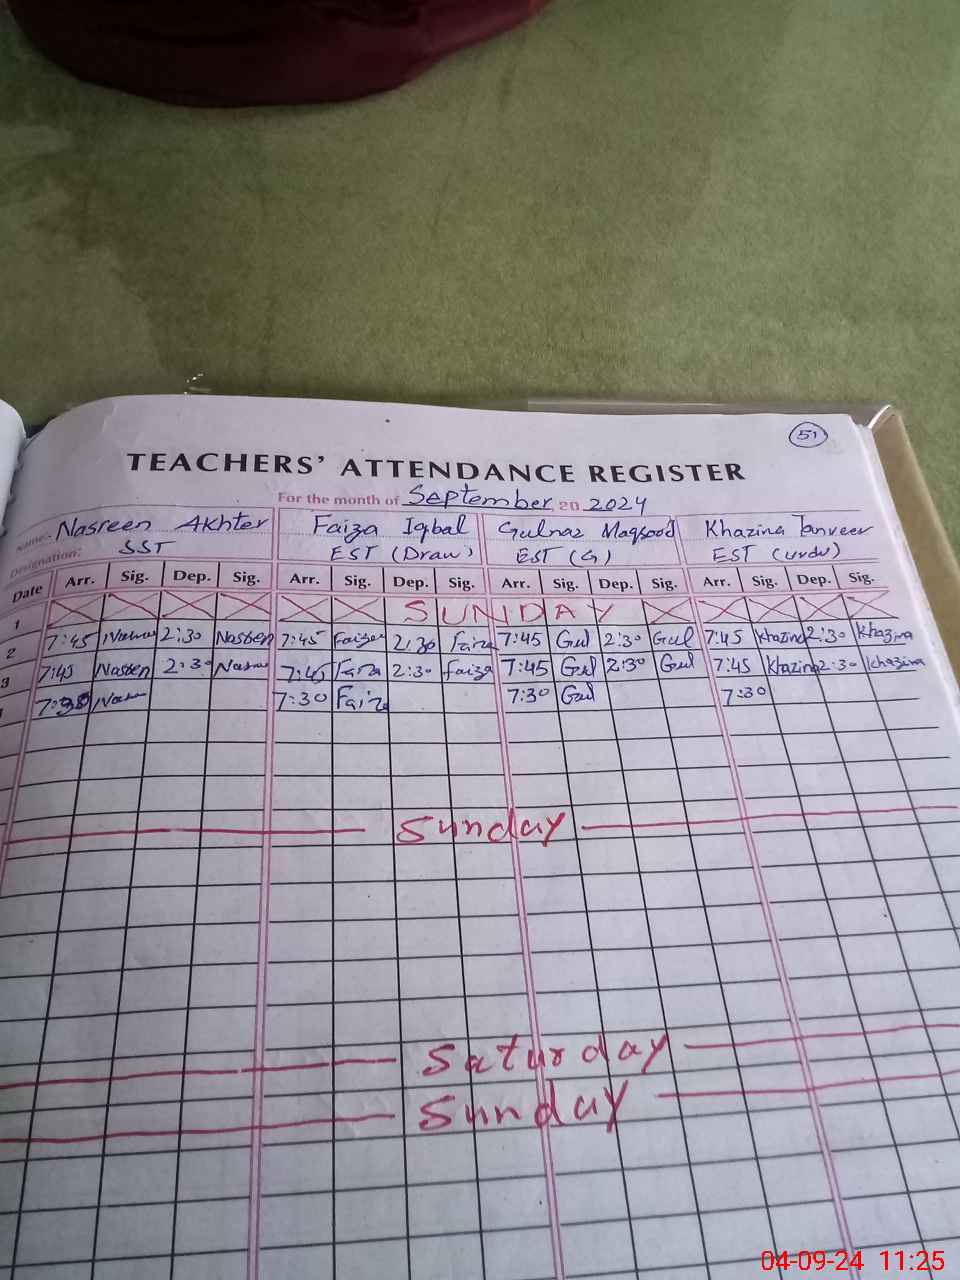 51
TEACHERS' ATTENDANCE REGISTER
For the month of September 20 2024
Name: Nasreen Akhter Faiza Iqbal Gulnaz Maqsood Khazina Tanveer
Designation: SST EST (Draw) EST (G) EST (Urdu)
Date Arr. Sig. Dep. Sig. Arr. Sig. Dep. Sig. Arr. Sig. Dep. Sig. Arr. Sig. Dep. Sig.
1 SUNDAY
2 7:45 2:30 Nasreen 7:45 Faiza 2:30 Faiza 7:45 Gul 2:30 Gul 7:45 Khazina 2:30 Khazina
3 7:45 Nasreen 2:30 7:45 Faiza 2:30 Faiza 7:45 Gul 2:30 Gul 7:45 Khazina 2:30 Khazina
7:30 7:30 Faiza 7:30 Gul 7:30
Sunday
Saturday
Sunday
04-09-24 11:25